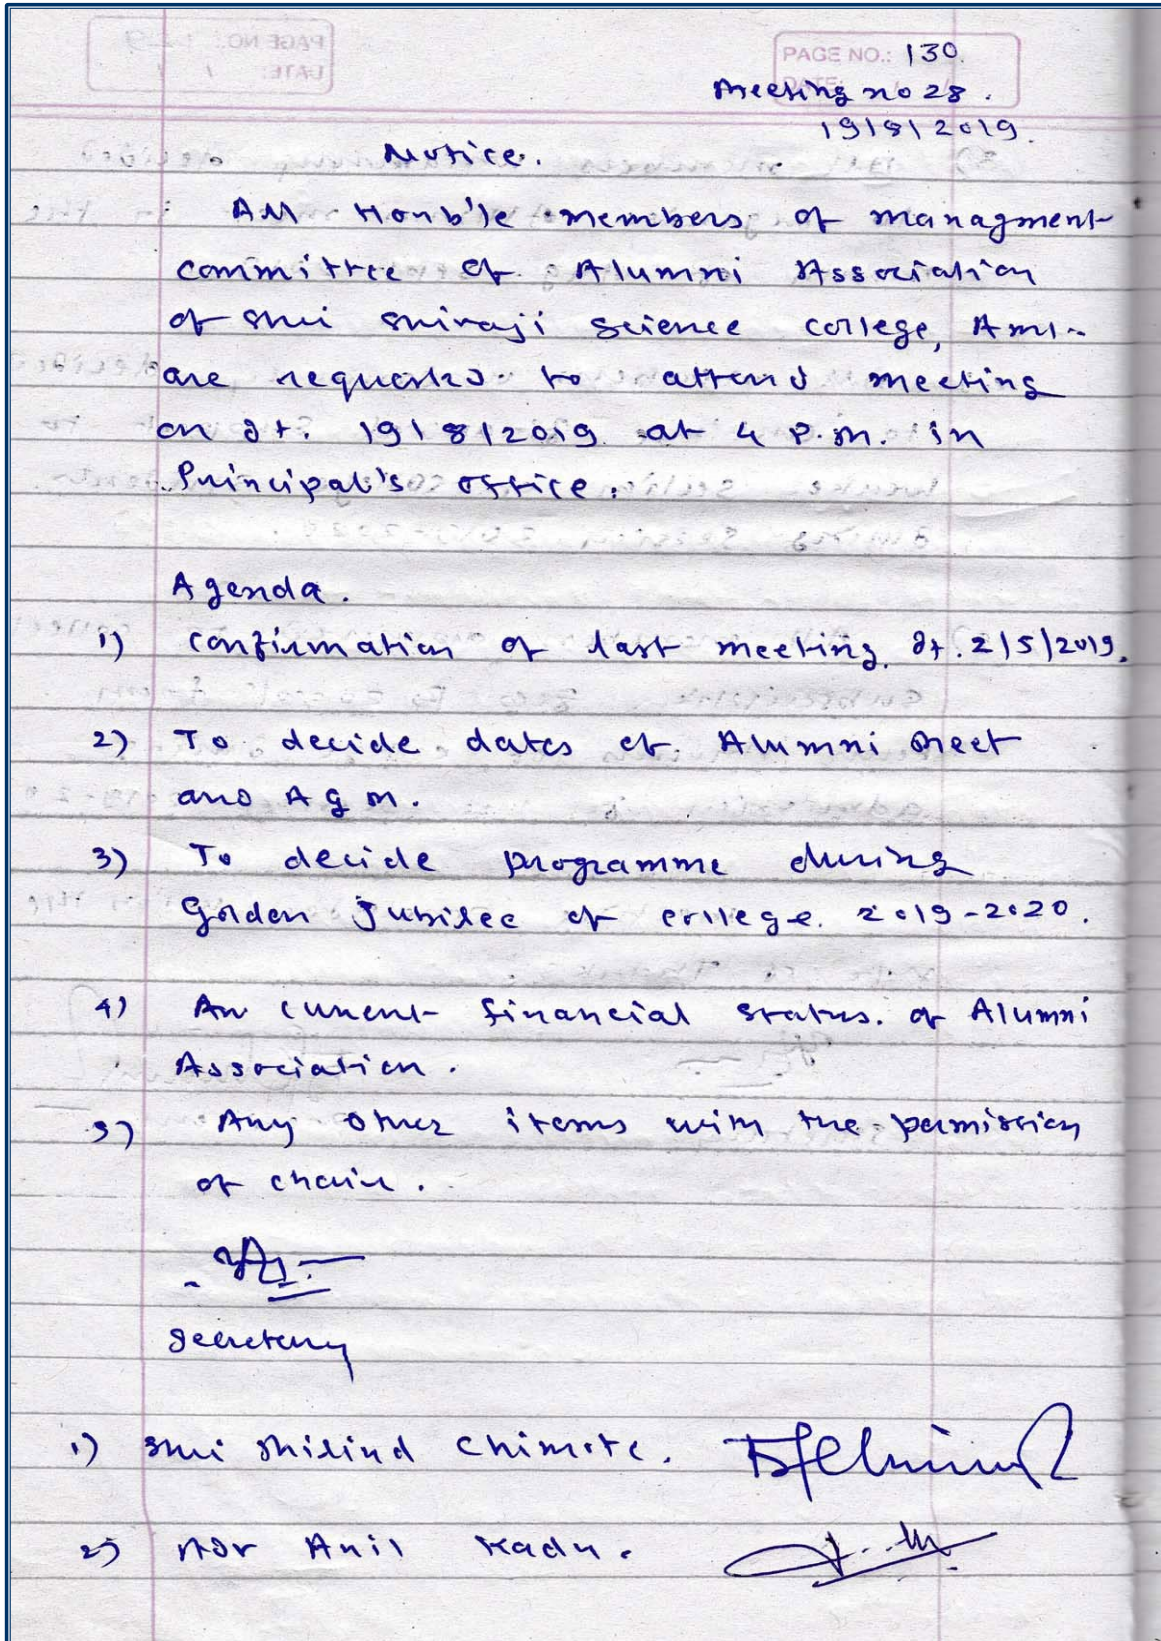 PAGE NO.: 130.
DATE:
Meeting no 28.
19/8/2019.
Notice.
All Honb'le members of managment
committee of Alumni Association
of Shri Shivaji Science College, Amt.
are requested to attend meeting
on dt. 19/8/2019 at 4 p.m. in
Principal's office.
Agenda.
1) Confirmation of last meeting. dt. 2/5/2019.
2) To decide dates of Alumni Meet
and AGM.
3) To decide programme during
Golden Jubilee of College. 2019-2020.
4) current financial status. of Alumni
Association.
5) Any other items with the permission
of chair.
Secretary
1) Shri Milind Chimote.
2) Adv Anil Kadu.